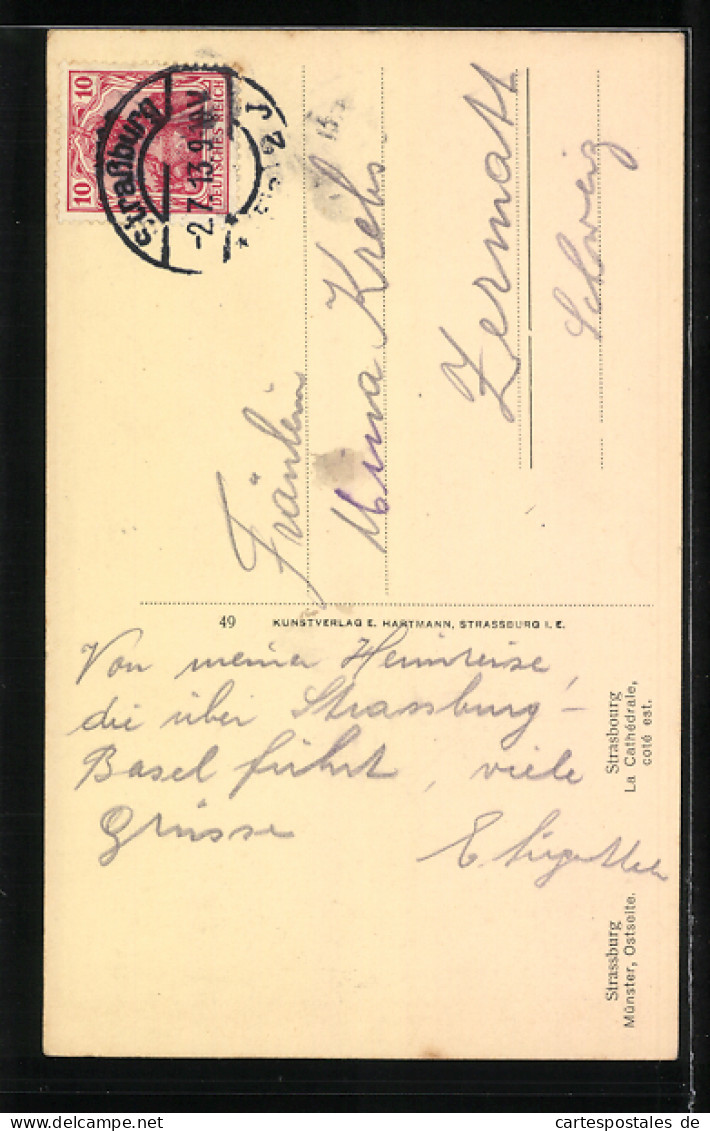 10
10
DEUTSCHES REICH
Straßburg
-2.7.13.9
Fräulein
Mina Krebs
Zermatt
Schweiz
49 KUNSTVERLAG E. HARTMANN, STRASSBURG I. E.
Von meiner Heimreise,
die über Strassburg-
Basel führt, viele
Grüsse
E.
Strasbourg
La Cathédrale,
coté est.
Strassburg
Münster, Ostseite.
cartespostales de